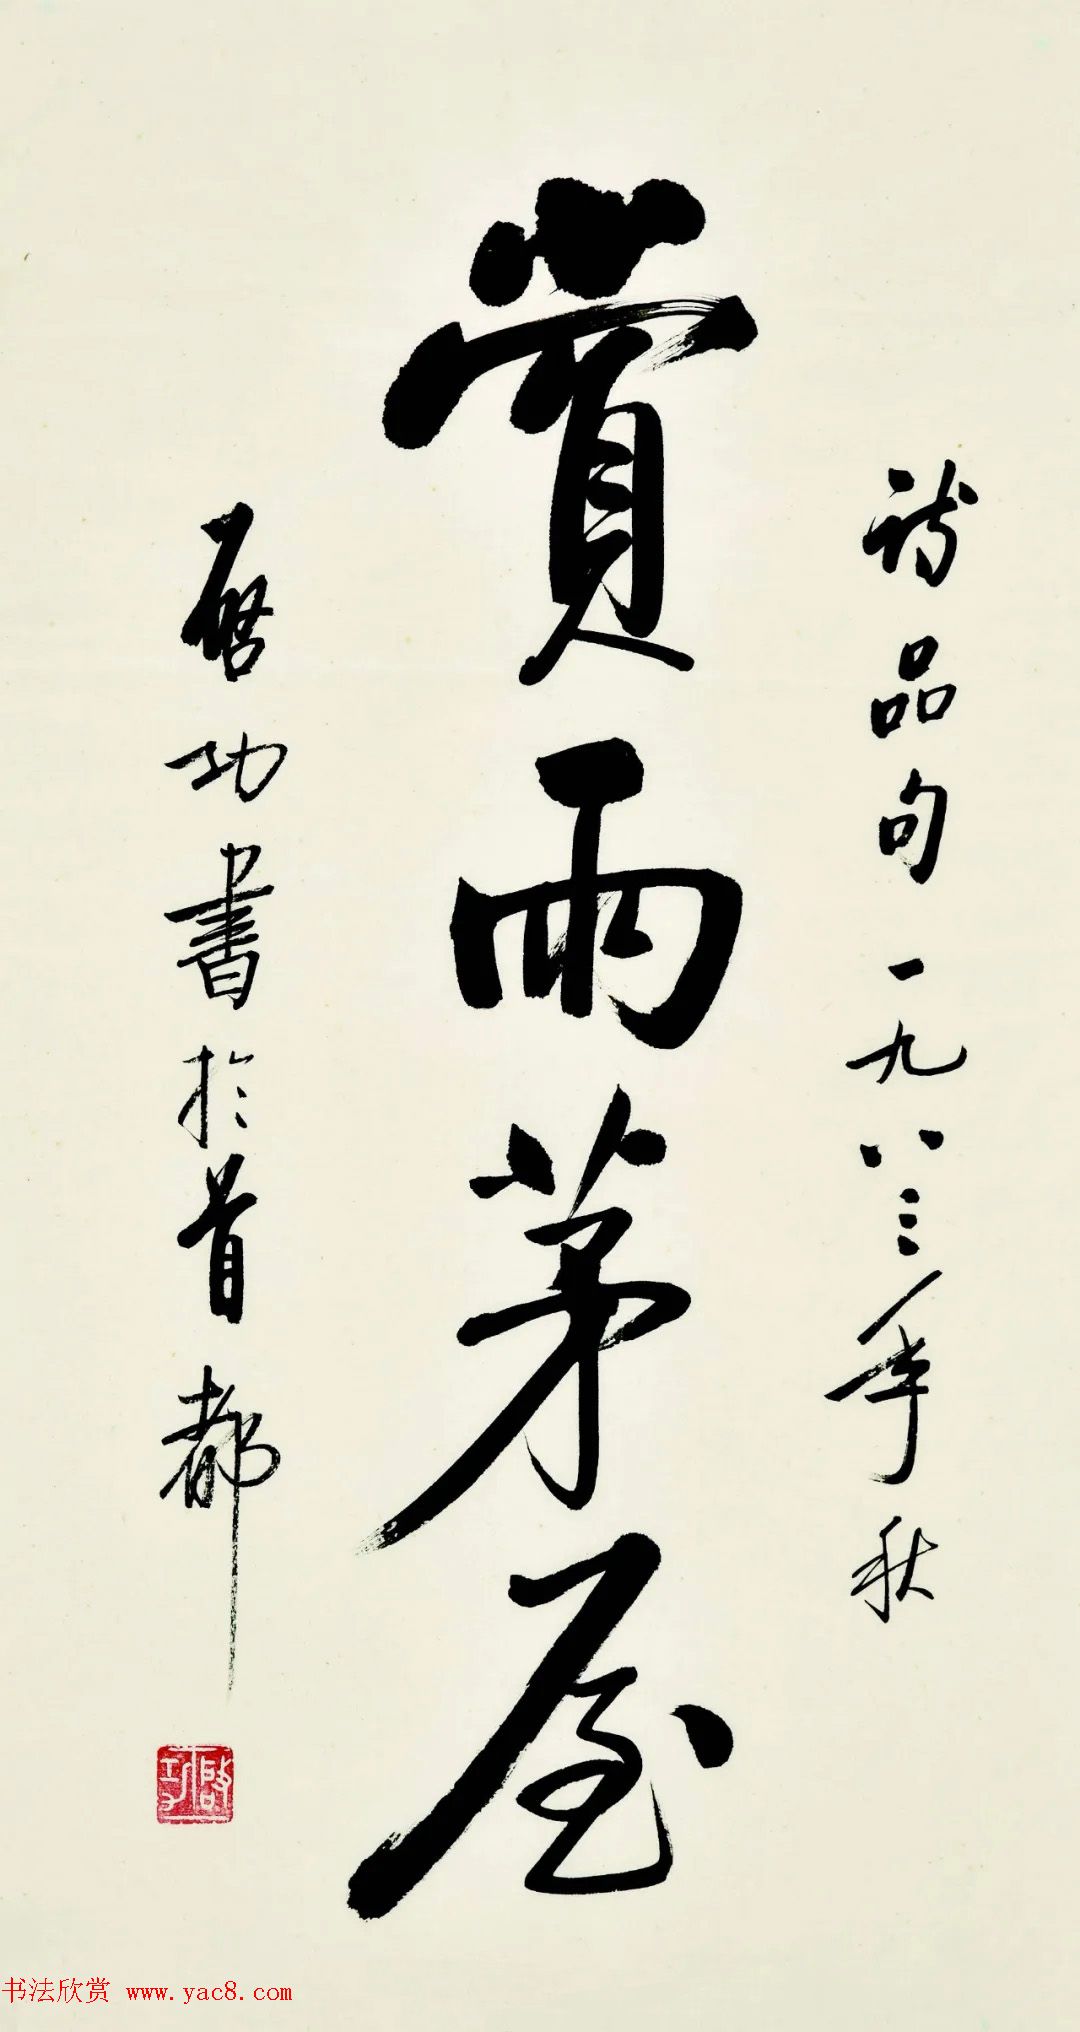 诗品句一九八三年秋
賞雨茅屋
启功書於首都
啟功
书法欣赏 www.yac8.com